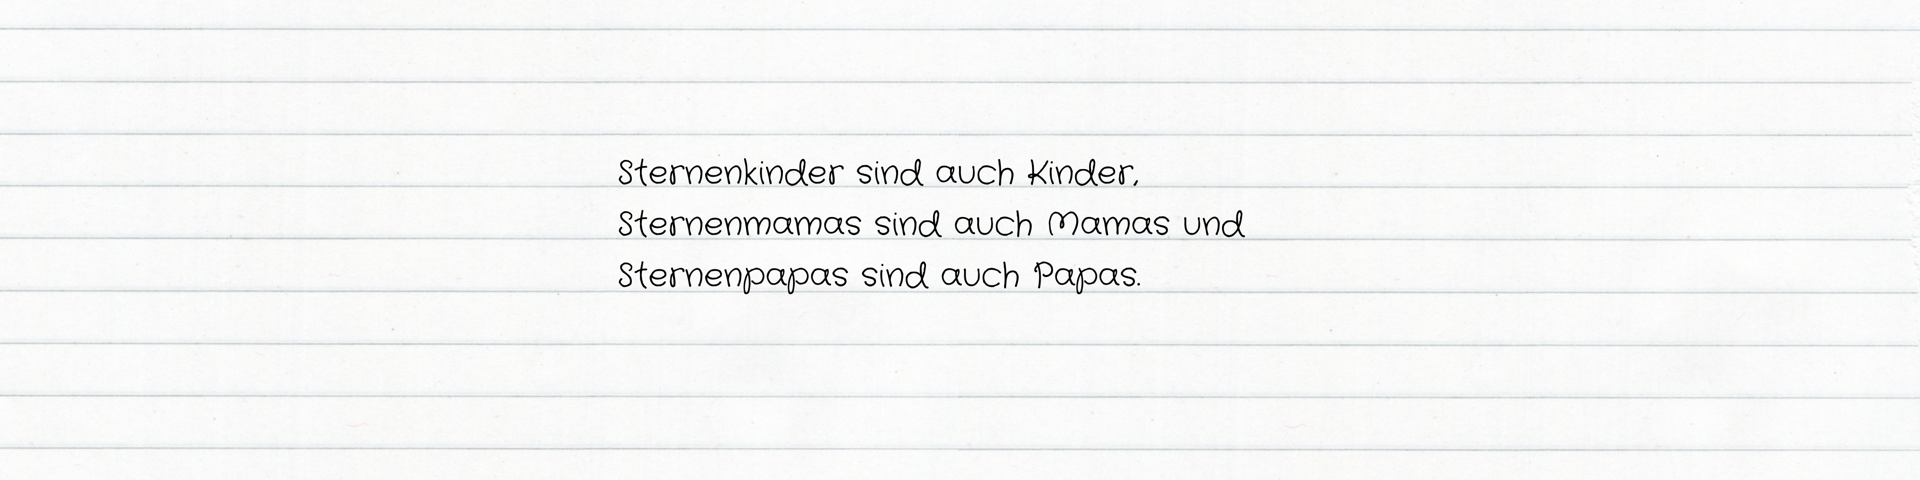 Sternenkinder sind auch Kinder,
Sternenmamas sind auch Mamas und
Sternenpapas sind auch Papas.